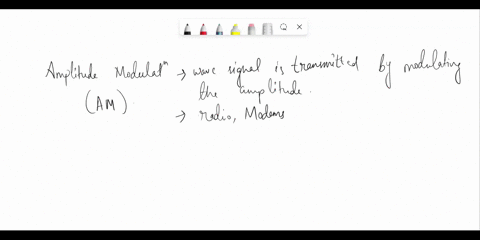 Amplitude Modulatⁿ → wave signal is transmitted by modulating
(AM) the amplitude.
→ radio, Modems